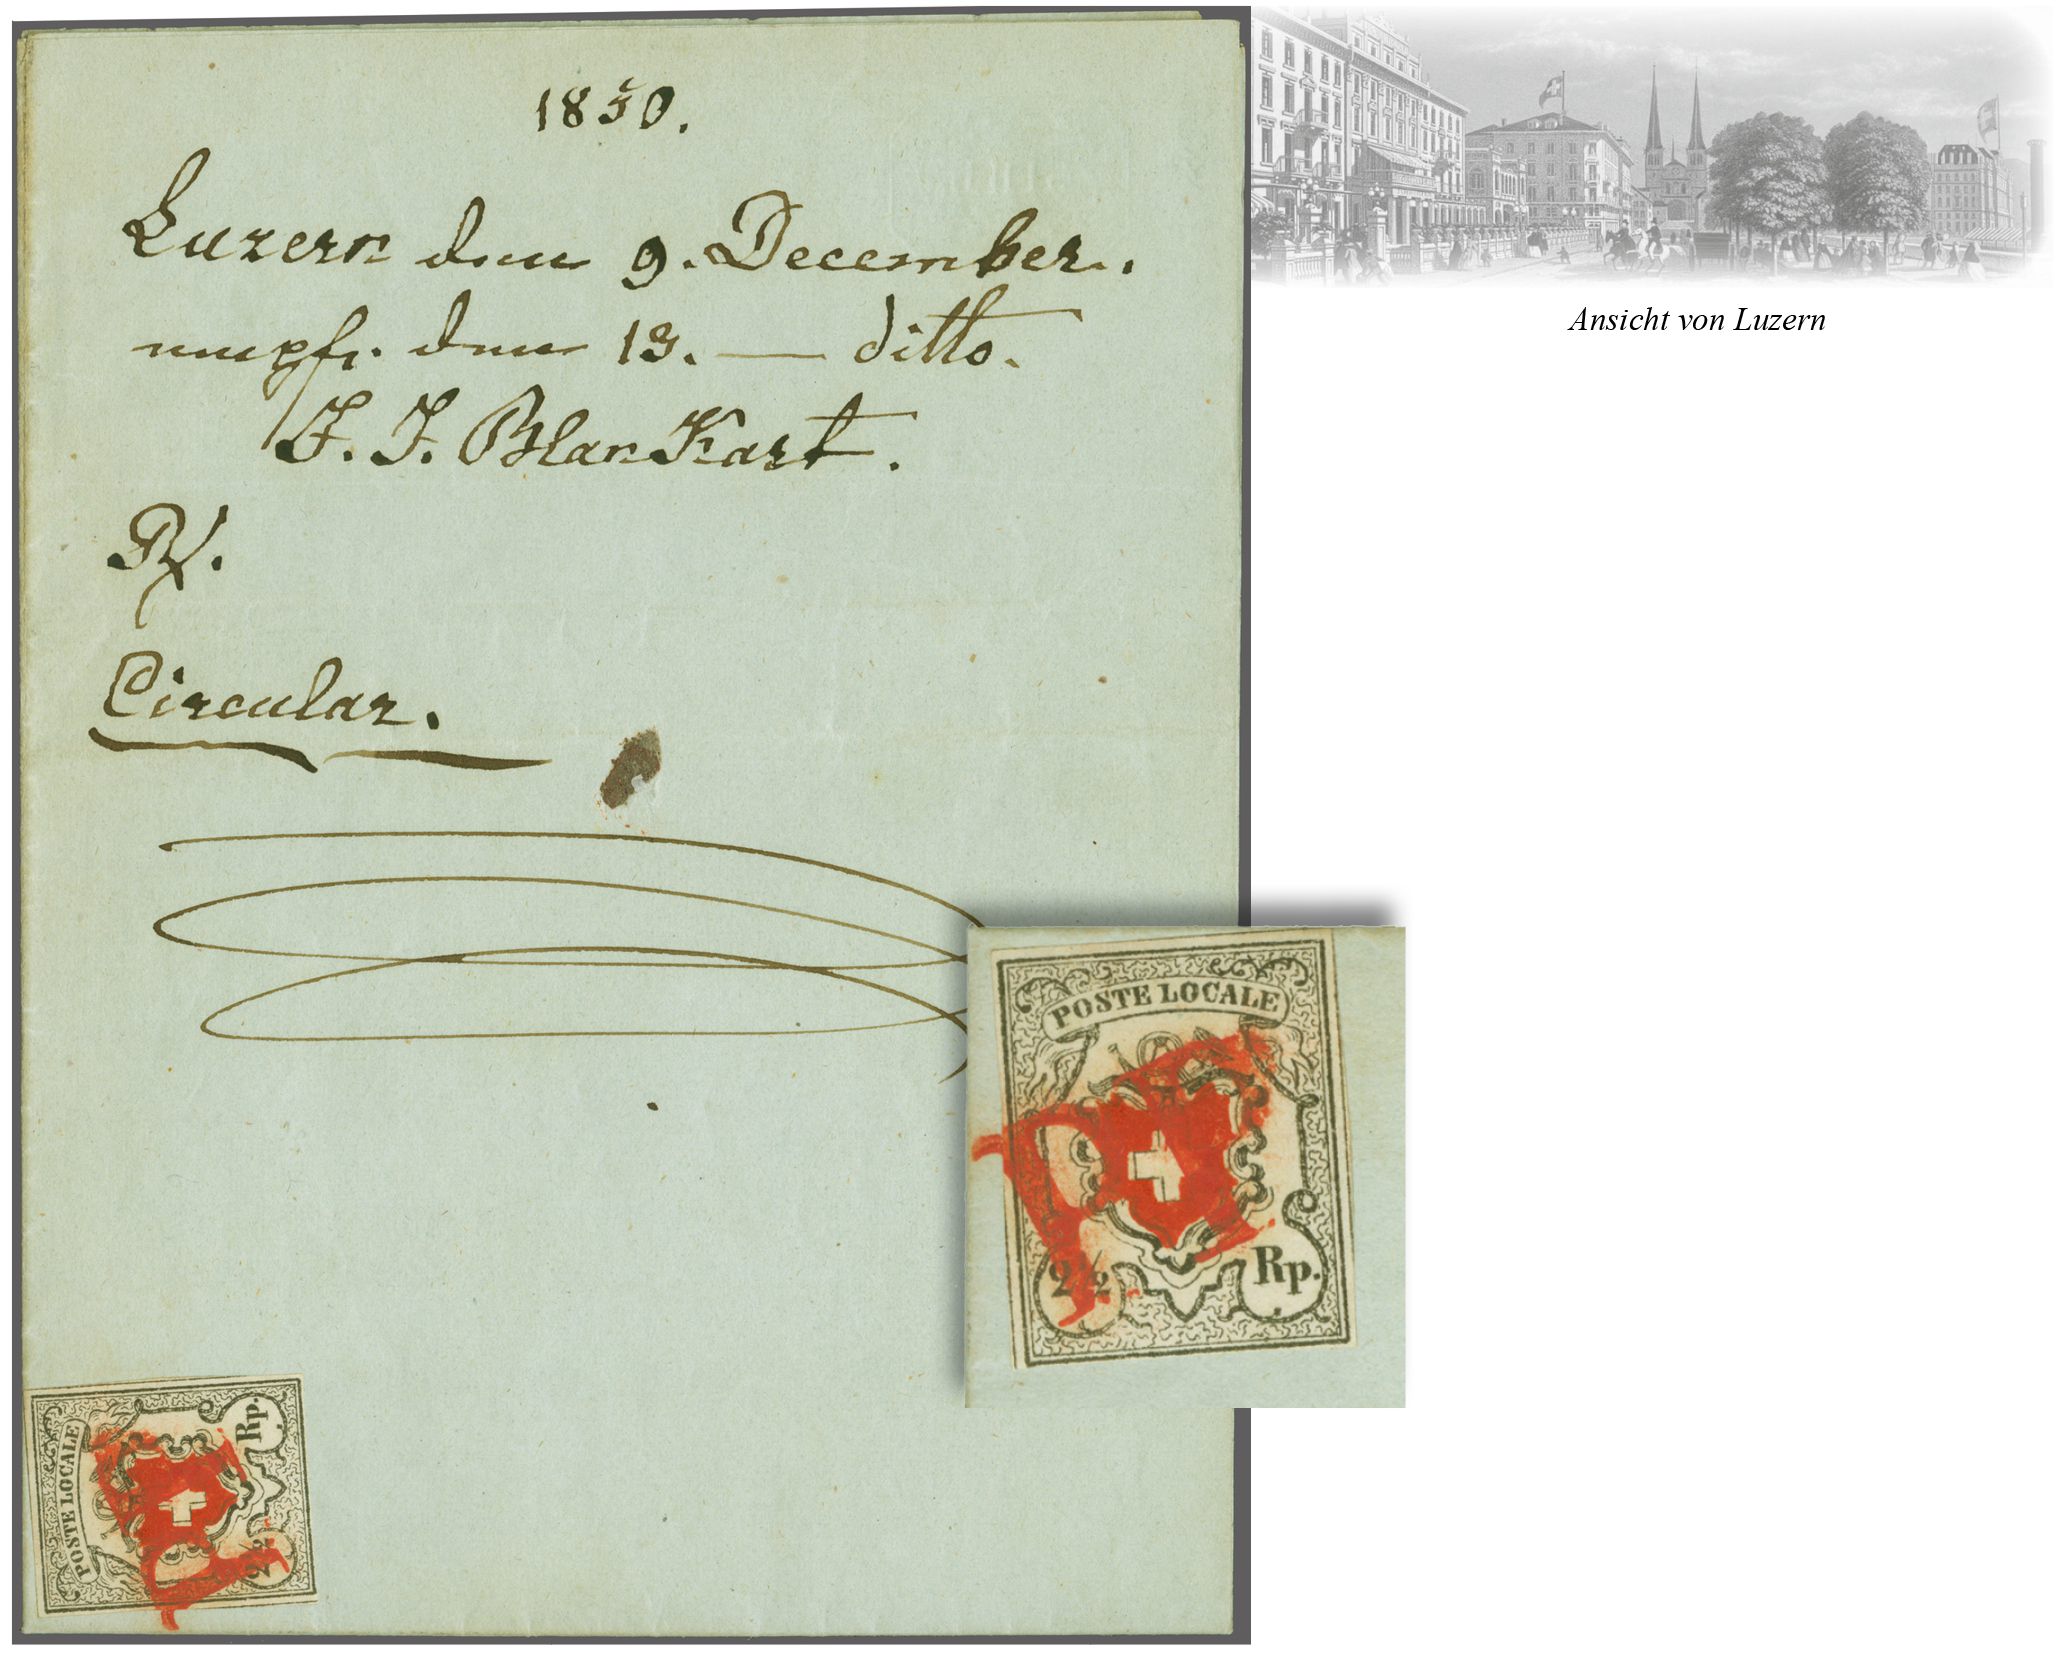 1850.
Luzern den 9. December.
empf. den 13. — ditto.
J. J. Blankart.
Circular.
POSTE LOCALE
2½ Rp.
POSTE LOCALE
2½ Rp.
Ansicht von Luzern